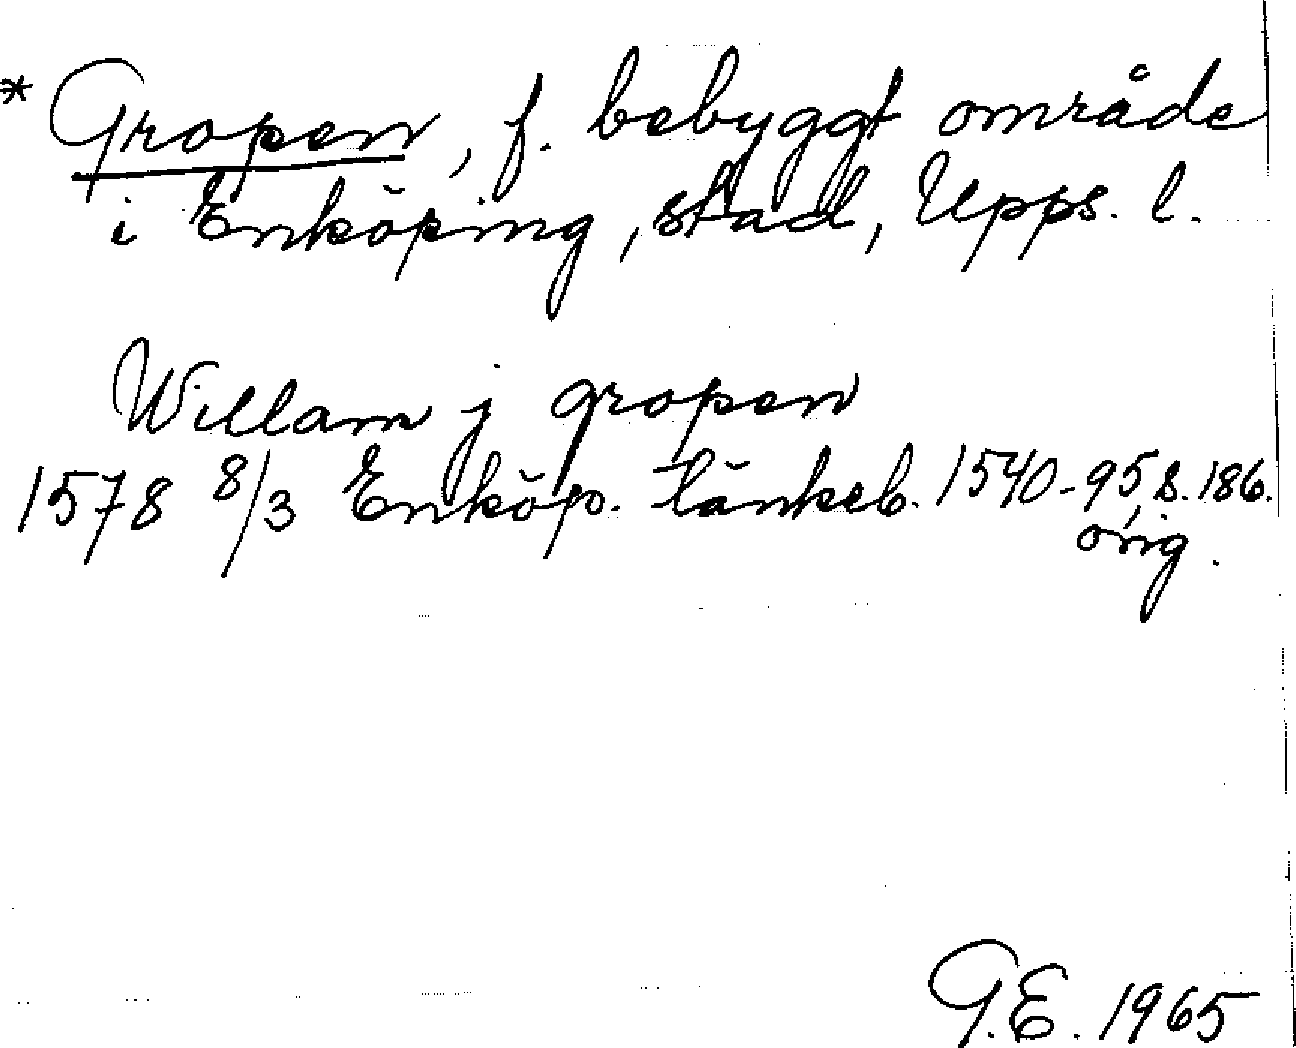 * Gropen, f. bebyggt område
i Enköping, stad, Upps. l.
Willam j gropen
1578 8/3 Enköp. tänkeb. 1540-95 s. 186.
orig.
G.E. 1965